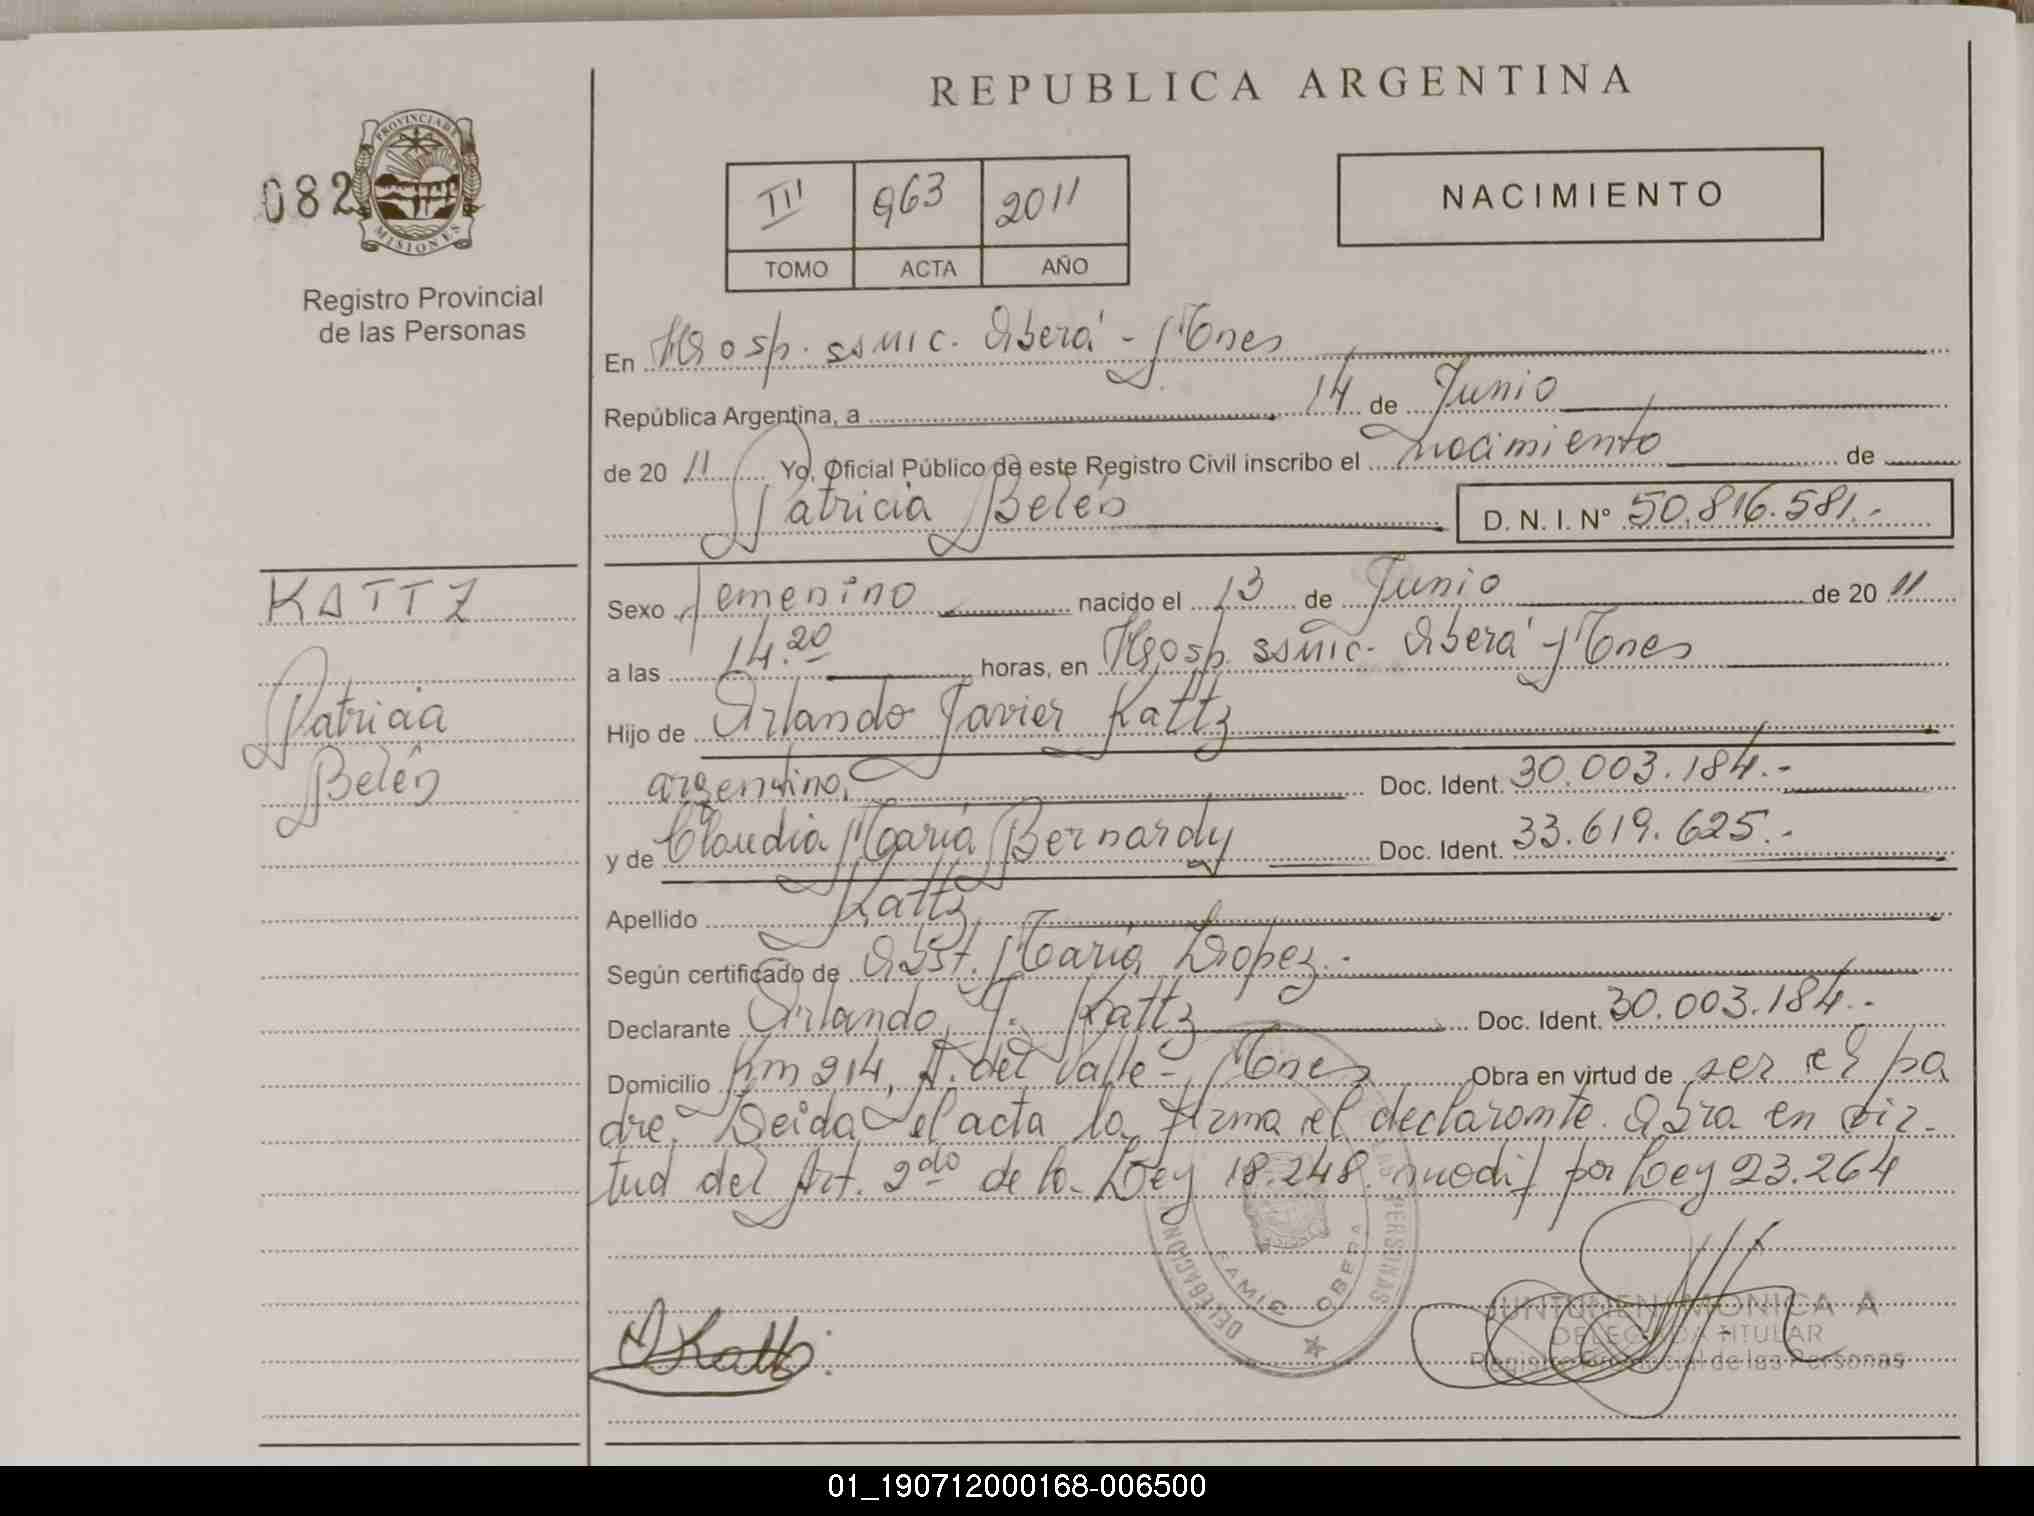 REPUBLICA ARGENTINA
PROVINCIA DE
MISIONES
082
Registro Provincial
de las Personas
III 963 2011
TOMO ACTA AÑO
NACIMIENTO
En Hosp. ssmic. Oberá - Mnes
República Argentina, a 14 de Junio
de 20 11 Yo, Oficial Público de este Registro Civil inscribo el nacimiento de
Patricia Belén D. N. I. N° 50.816.581.-
KATTZ
Patricia
Belén
Sexo femenino nacido el 13 de Junio de 20 11
a las 14.20 horas, en Hosp. ssmic. Oberá - Mnes
Hijo de Orlando Javier Kattz
argentino, Doc. Ident. 30.003.184.-
y de Claudia María Bernardy Doc. Ident. 33.619.625.-
Apellido Kattz
Según certificado de Obst. María Lopez.-
Declarante Orlando J. Kattz Doc. Ident. 30.003.184.-
Domicilio Km 214, A. del Valle - Mnes Obra en virtud de ser el pa
dre. Leida el acta la firma el declarante. Obra en vir-
tud del Art. 2do de la Ley 18.248 modif por Ley 23.264
DELEGACION PERSONAS
OBERA
JUNTUNEN MONICA A
DELEGADA TITULAR
Registro Provincial de las Personas
01_190712000168-006500